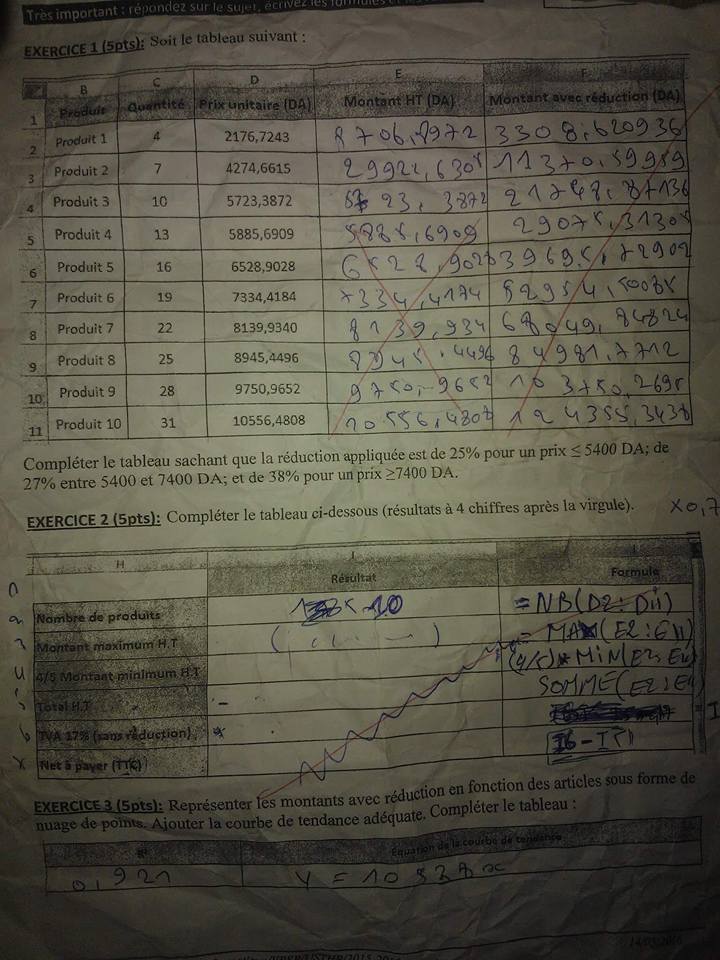 Très important : répondez sur le sujet, écrivez les formules et les
EXERCICE 1 (5pts): Soit le tableau suivant :
B C D E F
1 Produit Quantité Prix unitaire (DA) Montant HT (DA) Montant avec réduction (DA)
2 Produit 1 4 2176,7243 8706,8972 3308,620936
3 Produit 2 7 4274,6615 29922,6305 11370,59959
4 Produit 3 10 5723,3872 23,3872 21748,87136
5 Produit 4 13 5885,6909 5885,6909 29075,31305
6 Produit 5 16 6528,9028 6528,9028 39695,72902
7 Produit 6 19 7334,4184 7334,4174 52954,50085
8 Produit 7 22 8139,9340 8139,934 68049,84824
9 Produit 8 25 8945,4496 8945,4496 84981,7712
10 Produit 9 28 9750,9652 9750,9652 103750,2695
11 Produit 10 31 10556,4808 10556,4808 124355,3438
Compléter le tableau sachant que la réduction appliquée est de 25% pour un prix ≤ 5400 DA; de
27% entre 5400 et 7400 DA; et de 38% pour un prix ≥7400 DA.
EXERCICE 2 (5pts): Compléter le tableau ci-dessous (résultats à 4 chiffres après la virgule). x0,7
H I
Résultat Formule
Nombre de produits 10 =NB(D2:D11)
Montant maximum H.T =MAX(E2:E11)
4/5 Montant minimum H.T (4/5)*MIN(E2:E11
Total H.T SOMME(E2:E11
TVA 17% (sans réduction)
Net à payer (TTC) I6-I5
EXERCICE 3 (5pts): Représenter les montants avec réduction en fonction des articles sous forme de
nuage de points. Ajouter la courbe de tendance adéquate. Compléter le tableau :
R² Equation de la courbe de tendance
0,921